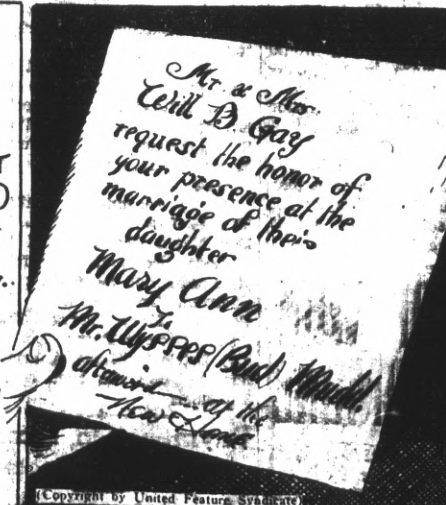 Mr & Mrs.
Will B. Gay
request the honor of
your presence at the
marriage of their
daughter
Mary Ann
To
Mr. Ulysses (Bud) Mudd.
afterward at the
New Home
(Copyright by United Feature Syndicate)